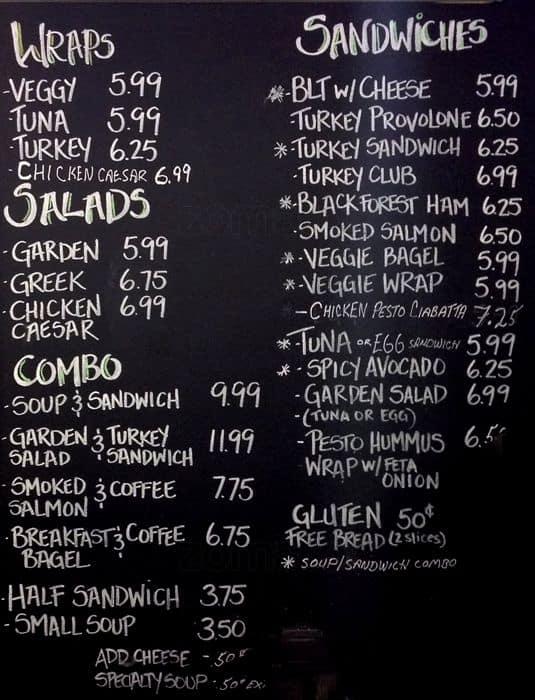 WRAPS
-VEGGY 5.99
-TUNA 5.99
-TURKEY 6.25
- CHICKEN CAESAR 6.99
SALADS
-GARDEN 5.99
-GREEK 6.75
-CHICKEN 6.99
CAESAR
COMBO
-SOUP & SANDWICH 9.99
-GARDEN & TURKEY 11.99
SALAD SANDWICH
-SMOKED & COFFEE 7.75
SALMON
-BREAKFAST & COFFEE 6.75
BAGEL
-HALF SANDWICH 3.75
-SMALL SOUP 3.50
ADD CHEESE - .50¢
SPECIALTY SOUP - .50¢ EX
SANDWICHES
*-BLT W/ CHEESE 5.99
TURKEY PROVOLONE 6.50
*-TURKEY SANDWICH 6.25
-TURKEY CLUB 6.99
*-BLACK FOREST HAM 6.25
-SMOKED SALMON 6.50
*-VEGGIE BAGEL 5.99
*-VEGGIE WRAP 5.99
-CHICKEN PESTO CIABATTA 7.25
*-TUNA OR EGG SANDWICH 5.99
*-SPICY AVOCADO 6.25
-GARDEN SALAD 6.99
-(TUNA OR EGG)
-PESTO HUMMUS
WRAP W/ FETA
ONION
GLUTEN 50¢
FREE BREAD (2 slices)
* SOUP/SANDWICH COMBO